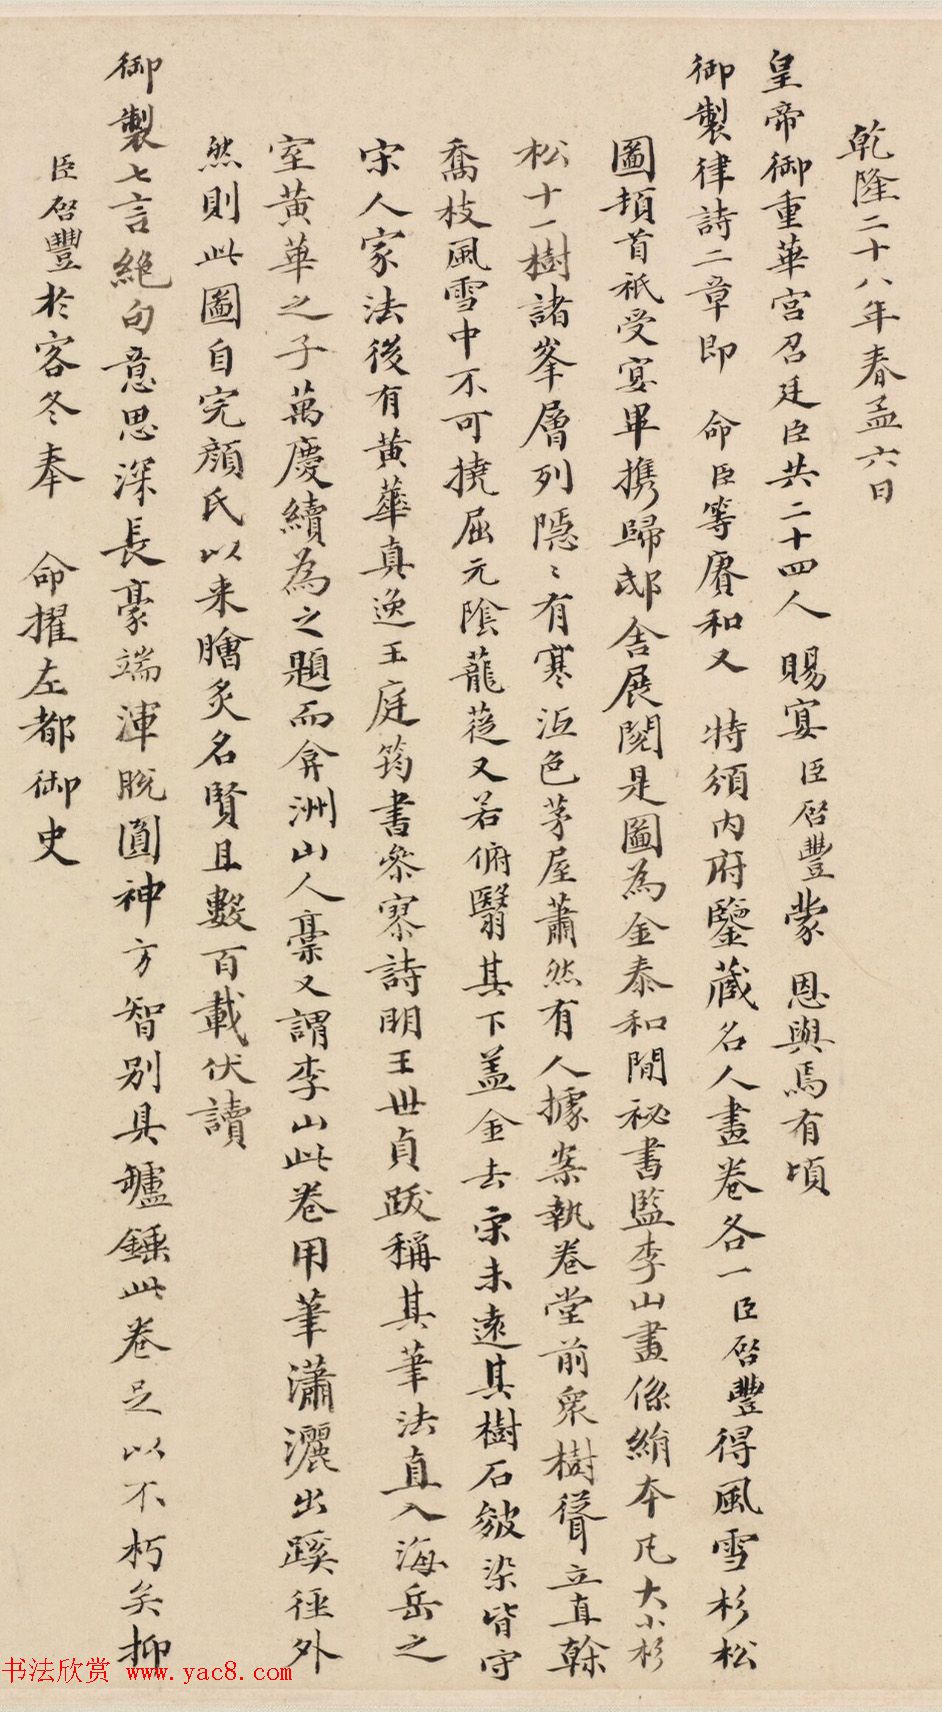 乾隆二十八年春孟六日
皇帝御重華宮召廷臣共二十四人 賜宴臣啓豐蒙 恩與焉有頃
御製律詩二章即 命臣等賡和又 特頒內府鑒藏名人畫卷各一臣啓豐得風雪杉松
圖頓首祇受宴畢攜歸邸舍展閱是圖為金泰和間祕書監李山畫係絹本凡大小杉
松十一樹諸峯層列隱〻有寒沍色茅屋蕭然有人據案執卷堂前眾樹聳立直榦
喬枝風雪中不可撓屈元陰蘢蓯又若俯翳其下蓋金去宋未遠其樹石皴染皆守
宋人家法後有黃華真逸王庭筠書參寥詩明王世貞跋稱其筆法直入海岳之
室黃華之子萬慶續為之題而弇洲山人稾又謂李山此卷用筆瀟灑出蹊徑外
然則此圖自完顏氏以来膾炙名賢且數百載伏讀
御製七言絕句意思深長豪端渾脫圓神方智別具罏錘此卷足以不朽矣抑
臣啓豐於客冬奉 命擢左都御史
书法欣赏 www.yac8.com